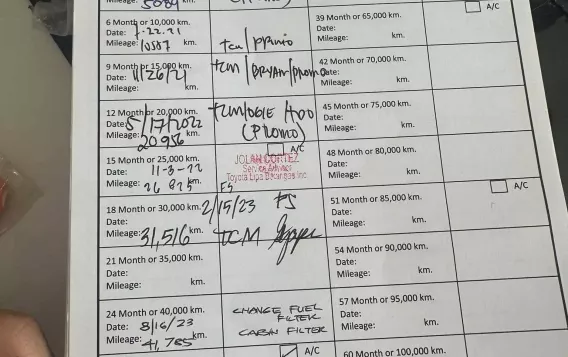 Mileage: 5089 km.
6 Month or 10,000 km.
Date: 7.22.21
Mileage: 10587 km.
tcm/PROMO
9 Month or 15,000 km.
Date: 11/26/21
Mileage: km.
TCM/BRYAN/PROMO
12 Month or 20,000 km.
Date: 5/17/2022
Mileage: 20956 km.
TCM/OGIE
(PROMO)
A/C
15 Month or 25,000 km.
Date: 11-3-22
Mileage: 26 825 km.
JOLAN CORTEZ
Service Advisor
Toyota Lipa Batangas Inc.
FS
18 Month or 30,000 km.
Mileage: 31,516 km.
2/15/23 FS
TCM
21 Month or 35,000 km.
Date:
Mileage: km.
24 Month or 40,000 km.
Date: 8/16/23
Mileage: 41,785 km.
CHANGE FUEL
FILTER
CABIN FILTER
A/C
39 Month or 65,000 km.
Date:
Mileage: km.
A/C
42 Month or 70,000 km.
Date:
Mileage: km.
45 Month or 75,000 km.
Date:
Mileage: km.
48 Month or 80,000 km.
Date:
Mileage: km.
A/C
51 Month or 85,000 km.
Date:
Mileage: km.
54 Month or 90,000 km.
Date:
Mileage: km.
57 Month or 95,000 km.
Date:
Mileage: km.
60 Month or 100,000 km.